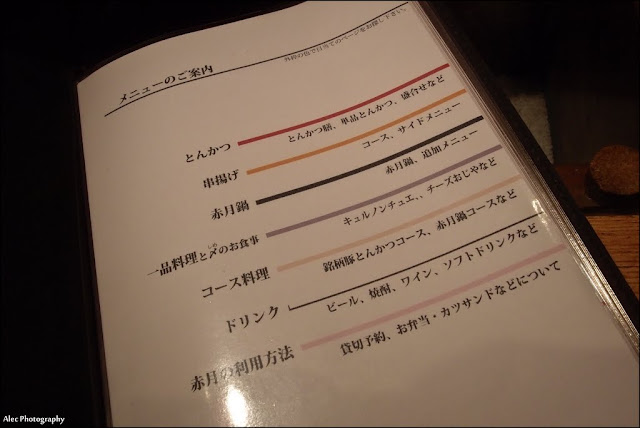 メニューのご案内
外枠の色で目当てのページをお探し下さい。
とんかつ
とんかつ膳、単品とんかつ、盛合せなど
串揚げ
コース、サイドメニュー
赤月鍋
赤月鍋、追加メニュー
一品料理と〆のお食事
しめ
キュルノンチュエ、、チーズおじやなど
コース料理
銘柄豚とんかつコース、赤月鍋コースなど
ドリンク
ビール、焼酎、ワイン、ソフトドリンクなど
赤月の利用方法
貸切予約、お弁当・カツサンドなどについて
Alec Photography